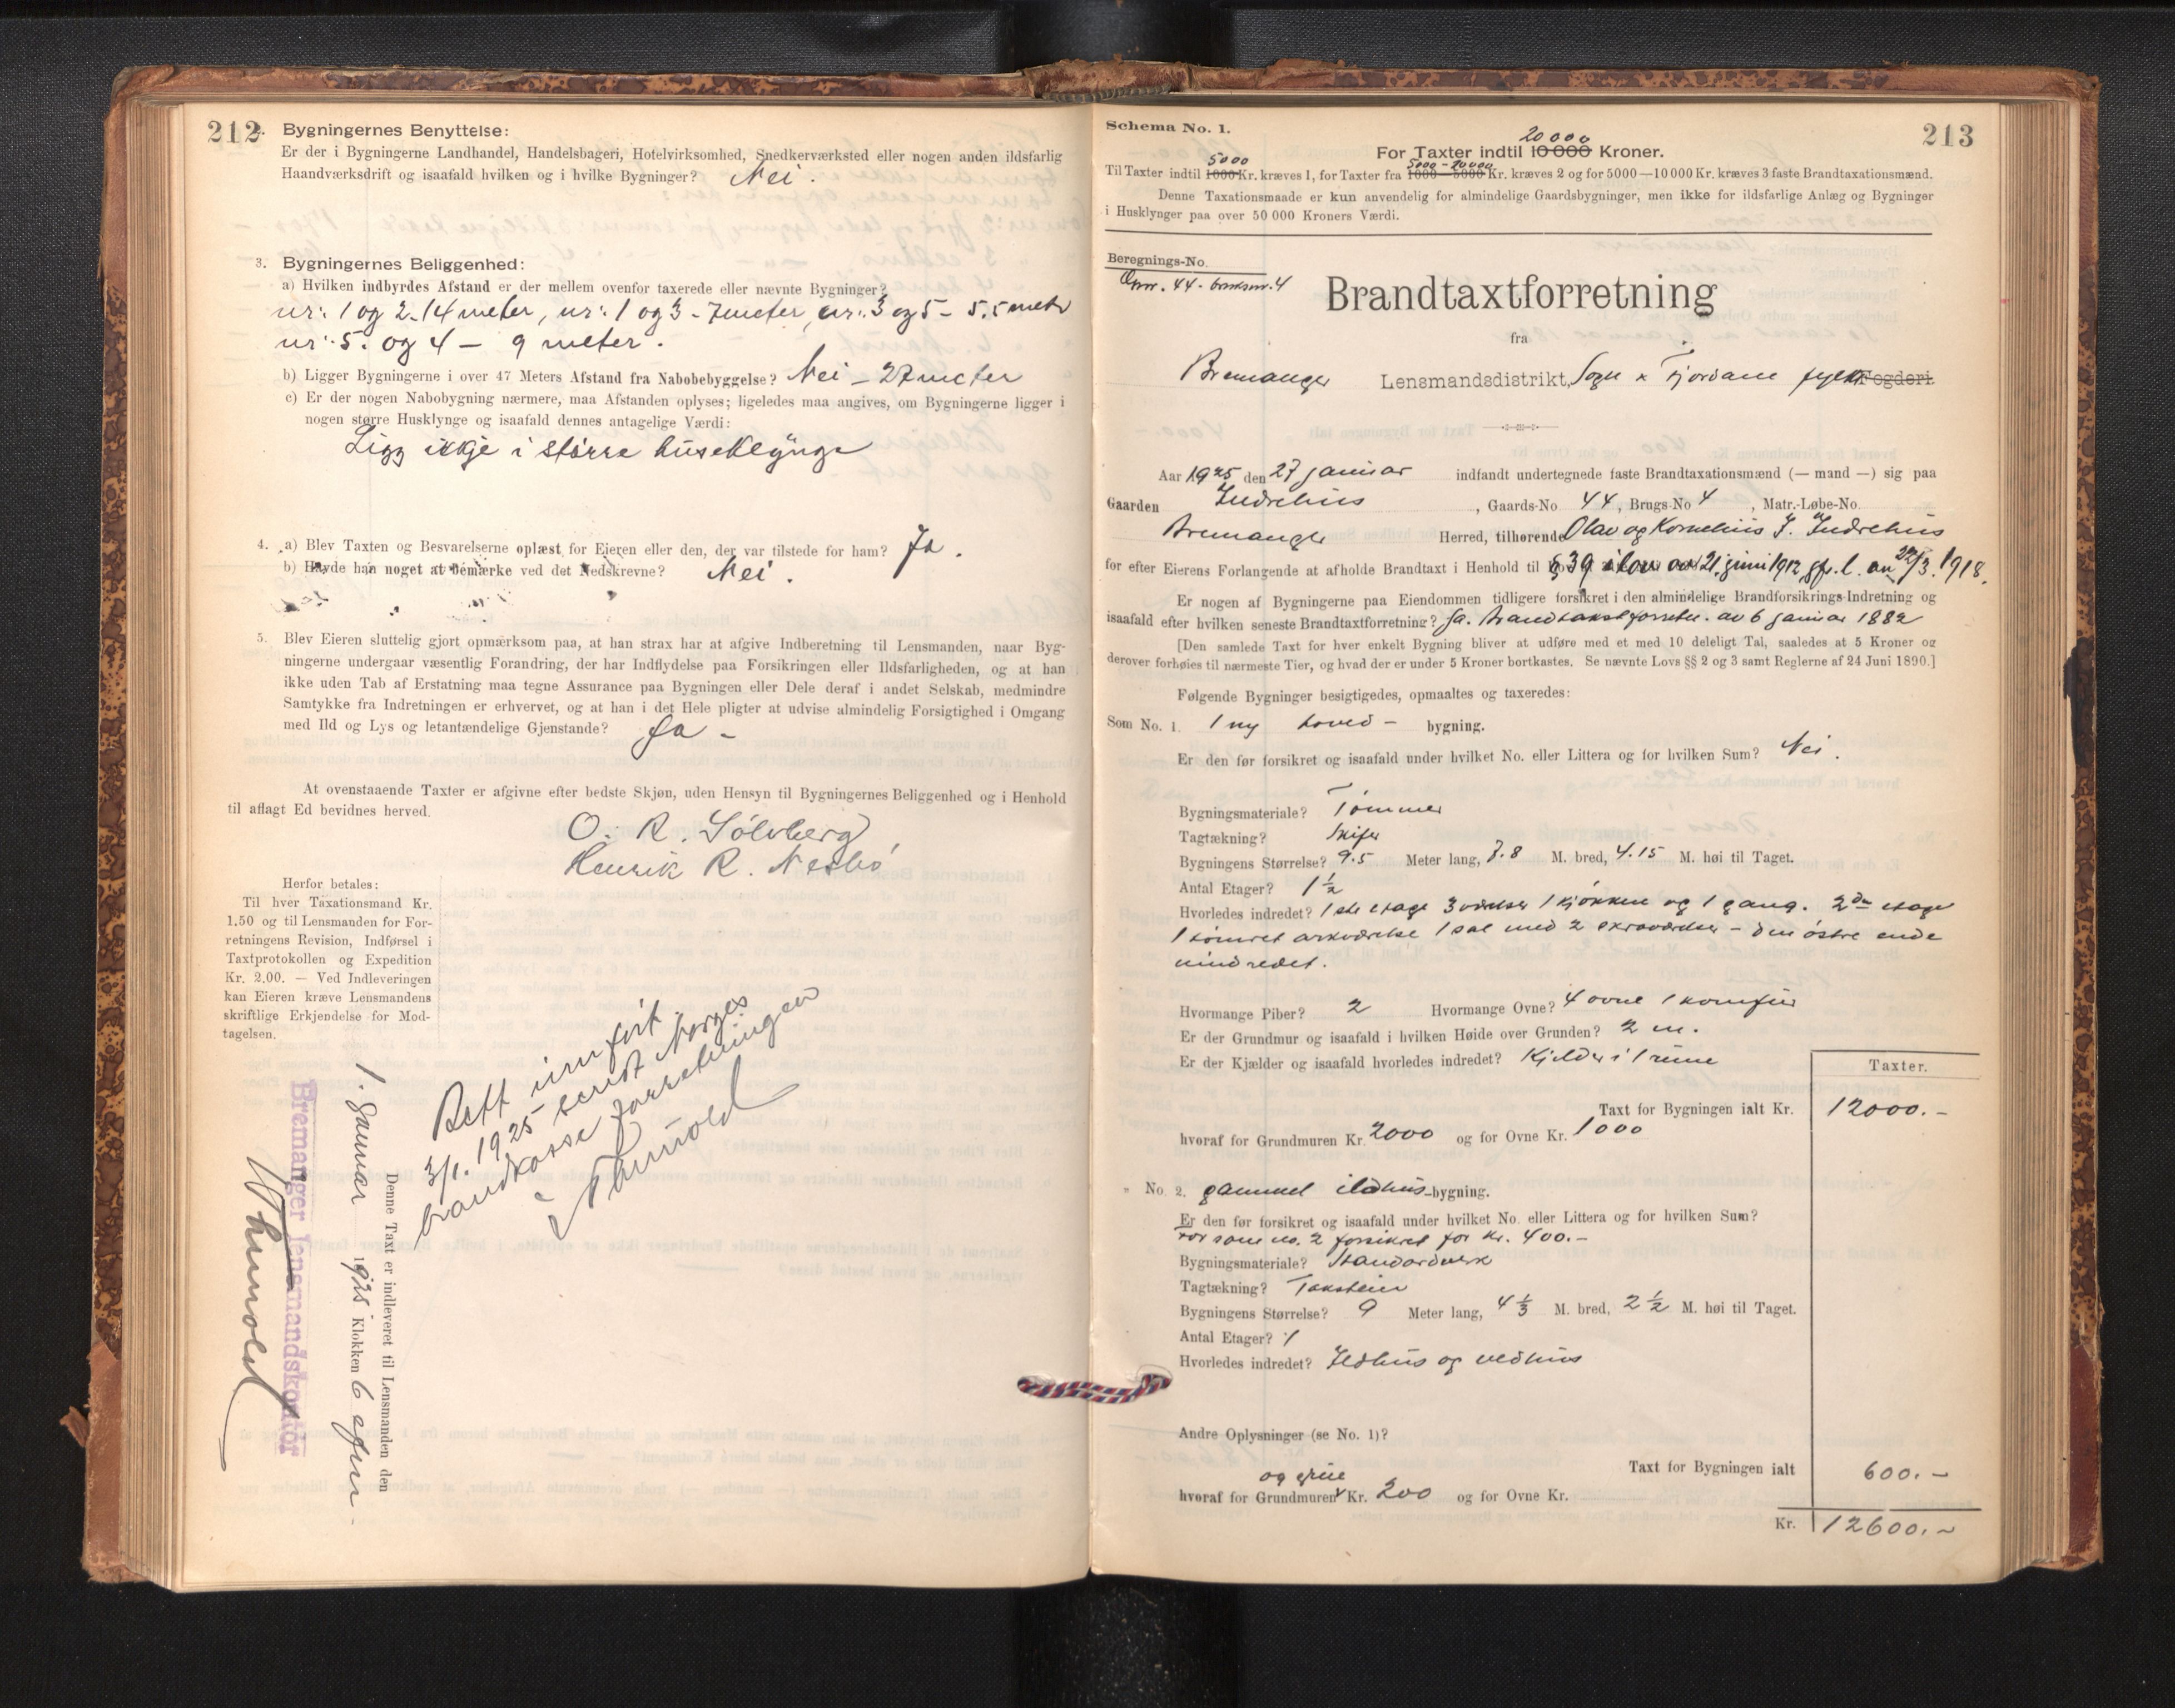 212
2. Bygningernes Benyttelse:
Er der i Bygningerne Landhandel, Handelsbageri, Hotelvirksomhed, Snedkerværksted eller nogen anden ildsfarlig
Haandværksdrift og isaafald hvilken og i hvilke Bygninger? Nei.
3. Bygningernes Beliggenhed:
a) Hvilken indbyrdes Afstand er der mellem ovenfor taxerede eller nævnte Bygninger?
nr. 1 og 2 - 14 meter, nr. 1 og 3 - 7 meter, nr. 3 og 5 - 5,5 meter
nr. 5. og 4 - 9 meter.
b) Ligger Bygningerne i over 47 Meters Afstand fra Nabobebyggelse? Nei - 27 meter
c) Er der nogen Nabobygning nærmere, maa Afstanden oplyses; ligeledes maa angives, om Bygningerne ligger i
nogen større Husklynge og isaafald dennes antagelige Værdi:
Ligg ikkje i större huseklynge
4. a) Blev Taxten og Besvarelserne oplæst for Eieren eller den, der var tilstede for ham? Ja.
b) Havde han noget at bemærke ved det Nedskrevne? Nei.
5. Blev Eieren sluttelig gjort opmærksom paa, at han strax har at afgive Indberetning til Lensmanden, naar Byg-
ningerne undergaar væsentlig Forandring, der har Indflydelse paa Forsikringen eller Ildsfarligheden, og at han
ikke uden Tab af Erstatning maa tegne Assurance paa Bygningen eller Dele deraf i andet Selskab, medmindre
Samtykke fra Indretningen er erhvervet, og at han i det Hele pligter at udvise almindelig Forsigtighed i Omgang
med Ild og Lys og letantændelige Gjenstande? Ja -
At ovenstaaende Taxter er afgivne efter bedste Skjøn, uden Hensyn til Bygningernes Beliggenhed og i Henhold
til aflagt Ed bevidnes herved.
O. R. Sölvberg
Henrik R. Nesbö
Herfor betales:
Til hver Taxationsmand Kr.
1,50 og til Lensmanden for For-
retningens Revision, Indførsel i
Taxtprotokollen og Expedition
Kr. 2,00. — Ved Indleveringen
kan Eieren kræve Lensmandens
skriftlige Erkjendelse for Mod-
tagelsen.
Rett innfört
3/1. 1925 sendt Norges
brandkasse forretningen
Denne Taxt er indleveret til Lensmanden den
1. januar 1925 Klokken 6 efm -
Bremanger lensmandskontor
Schema No. 1.
213
20 000
For Taxter indtil 10 000 Kroner.
5000 5000 - 20 000
Til Taxter indtil 1000 Kr. kræves 1, for Taxter fra 1000—5000 Kr. kræves 2 og for 5000—10 000 Kr. kræves 3 faste Brandtaxationsmænd.
Denne Taxationsmaade er kun anvendelig for almindelige Gaardsbygninger, men ikke for ildsfarlige Anlæg og Bygninger
i Husklynger paa over 50 000 Kroners Værdi.
Beregnings-No.
Gnr. 44. bruksnr. 4
Brandtaxtforretning
fra
Bremanger Lensmandsdistrikt, Sogn & Fjordane fylke Fogderi.
Aar 1925 den 27 januar indfandt undertegnede faste Brandtaxationsmænd (— mand —) sig paa
Gaarden Indrehus, Gaards-No 44, Brugs-No 4, Matr.-Løbe-No.
Bremanger Herred, tilhørende Olav og Kornelius J. Indrehus
for efter Eierens Forlangende at afholde Brandtaxt i Henhold til § 39 i lov av 21 juni 1912, jfr. l. av 22/3. 1918.
Er nogen af Bygningerne paa Eiendommen tidligere forsikret i den almindelige Brandforsikrings-Indretning og
isaafald efter hvilken seneste Brandtaxtforretning? Ja. Brandtakstforretn. av 6 januar 1882
[Den samlede Taxt for hver enkelt Bygning bliver at udføre med et med 10 deleligt Tal, saaledes at 5 Kroner og
derover forhøies til nærmeste Tier, og hvad der er under 5 Kroner bortkastes. Se nævnte Lovs §§ 2 og 3 samt Reglerne af 24 Juni 1890.]
Følgende Bygninger besigtigedes, opmaaltes og taxeredes:
Som No. 1. 1 ny hoved - bygning.
Er den før forsikret og isaafald under hvilket No. eller Littera og for hvilken Sum? Nei.
Bygningsmateriale? Tömmer
Tagtækning? Skifer
Bygningens Størrelse? 9.5 Meter lang, 7.8 M. bred, 4.15 M. høi til Taget.
Antal Etager? 1½
Hvorledes indredet? 1ste etage 3 værelser 1 kjökken og 1 gang. 2den etage
1 tömret arkværelse 1 sal med 2 skraaværelser - den östre ende
uindredet.
Hvormange Piber? 2 Hvormange Ovne? 4 ovne 1 komfür
Er der Grundmur og isaafald i hvilken Høide over Grunden? 2 m.
Er der Kjælder og isaafald hvorledes indredet? Kjelder i 1 rum
Taxter.
Taxt for Bygningen ialt Kr. 12000.-
hvoraf for Grundmuren Kr. 2000 og for Ovne Kr. 1000
" No. 2. gammel ildhus-bygning.
Er den før forsikret og isaafald under hvilket No. eller Littera og for hvilken Sum?
som no. 2 forsikret for kr. 400.-
Bygningsmateriale? Standardverk
Tagtækning? Takstein
Bygningens Størrelse? 9 Meter lang, 4⅓ M. bred, 2½ M. høi til Taget.
Antal Etager? 1
Hvorledes indredet? Ildhus og vedhus
Andre Oplysninger (se No. 1)?
Taxt for Bygningen ialt 600.-
og grue
hvoraf for Grundmuren Kr. 200 og for Ovne Kr.
Kr. 12600.-